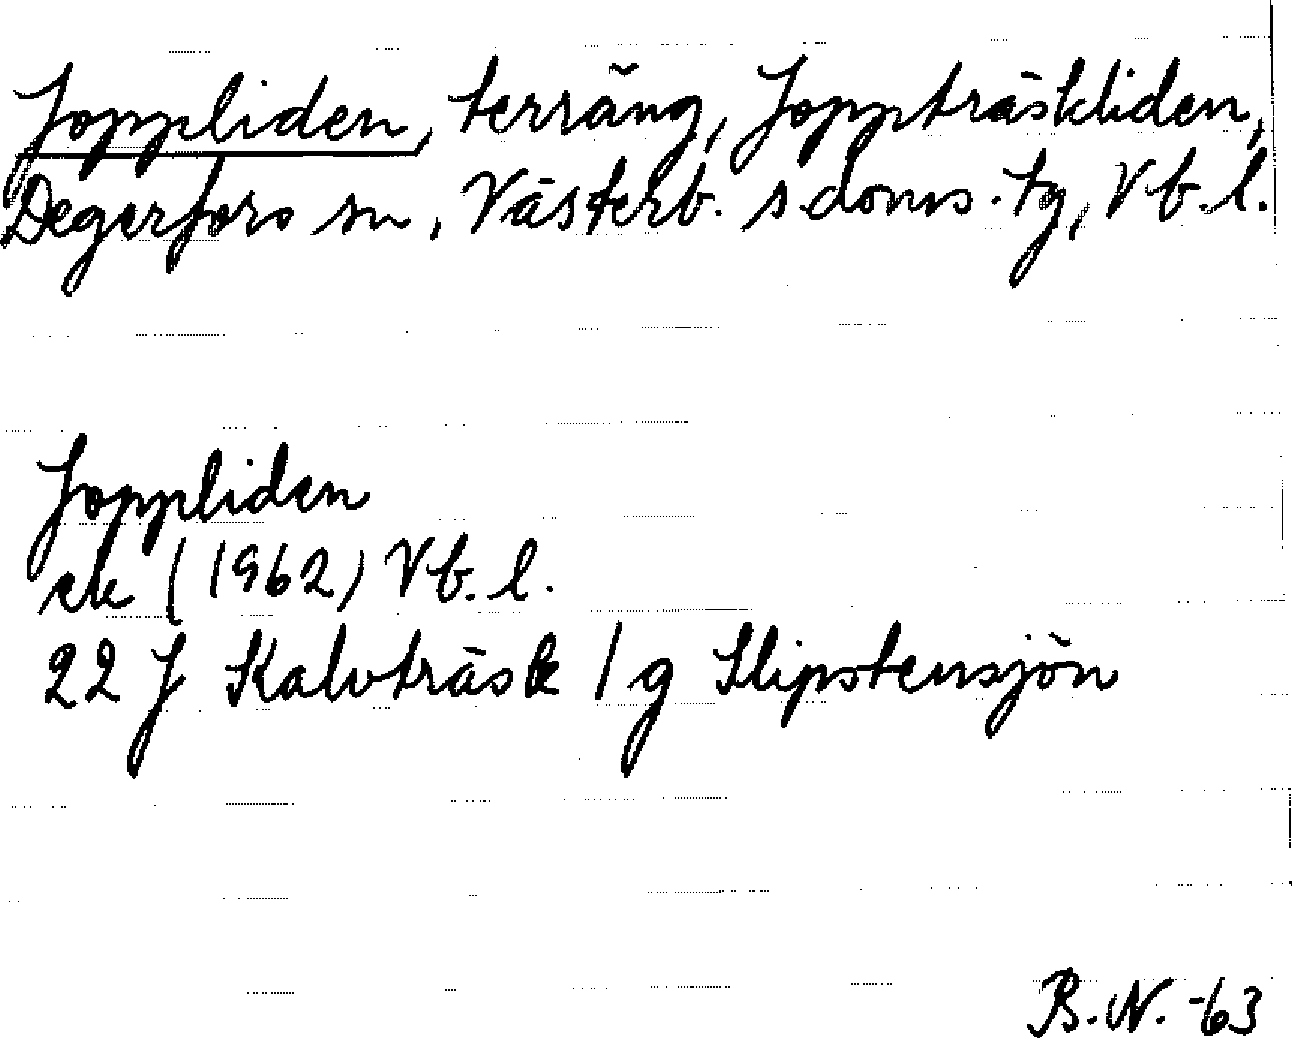 Joppliden, terräng, Joppträskliden,
Degerfors sn, Västerb. s. doms. tg, Vb. l.
Joppliden
ek (1962) Vb. l.
22 J Kalvträsk 1 g Slipstensjön
B. N. -63